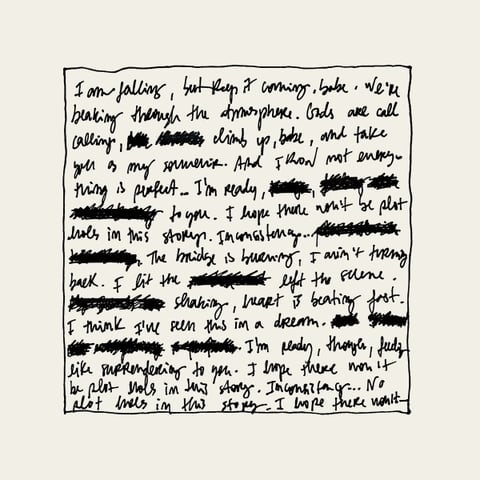 I am falling, but keep it coming, babe. We're
beaking through the atmosphere. Gods are call
calling, climb up, babe, and take
you as my souvenir. And I know not every-
thing is perfect... I'm ready,
to you. I hope there won't be plot
holes in this story. Inconsistency...
The bridge is burning, I ain't turning
back. I lit the left the scene.
shaking, heart is beating fast.
I think I've seen this in a dream.
I'm ready, though, feels
like surrendering to you. I hope there won't
be plot holes in this story. Inconsistency... No
plot holes in this story. I hope there won't